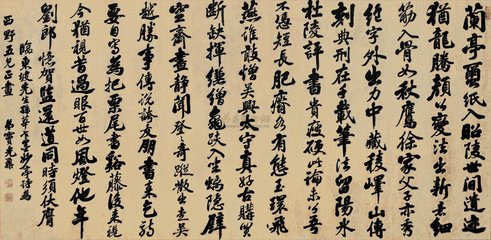 蘭亭繭紙入昭陵世間遺迹
猶龍騰顏公變法出新意細
筋入骨如秋鷹徐家父子亦秀
絕字外出力中藏稜嶧山傳
刻典刑在千載筆法留陽冰
杜陵評書貴瘦硬此論未公吾
不憑短長肥瘠各有態玉環飛
燕誰敢憎吳興太守真好古購買
斷缺揮縑繒龜趺入坐螭隱壁
空齋晝靜聞登登奇蹤散出走吳
越勝事傳說誇友朋書來乞詩
要自寫為把栗尾書谿藤後來視
今猶視昔過眼百世如風燈他年
劉郎憶賀監還道同時須伏膺
臨東坡先生孫莘老求墨妙亭詩為
西野五兄正
弟竇光鼐